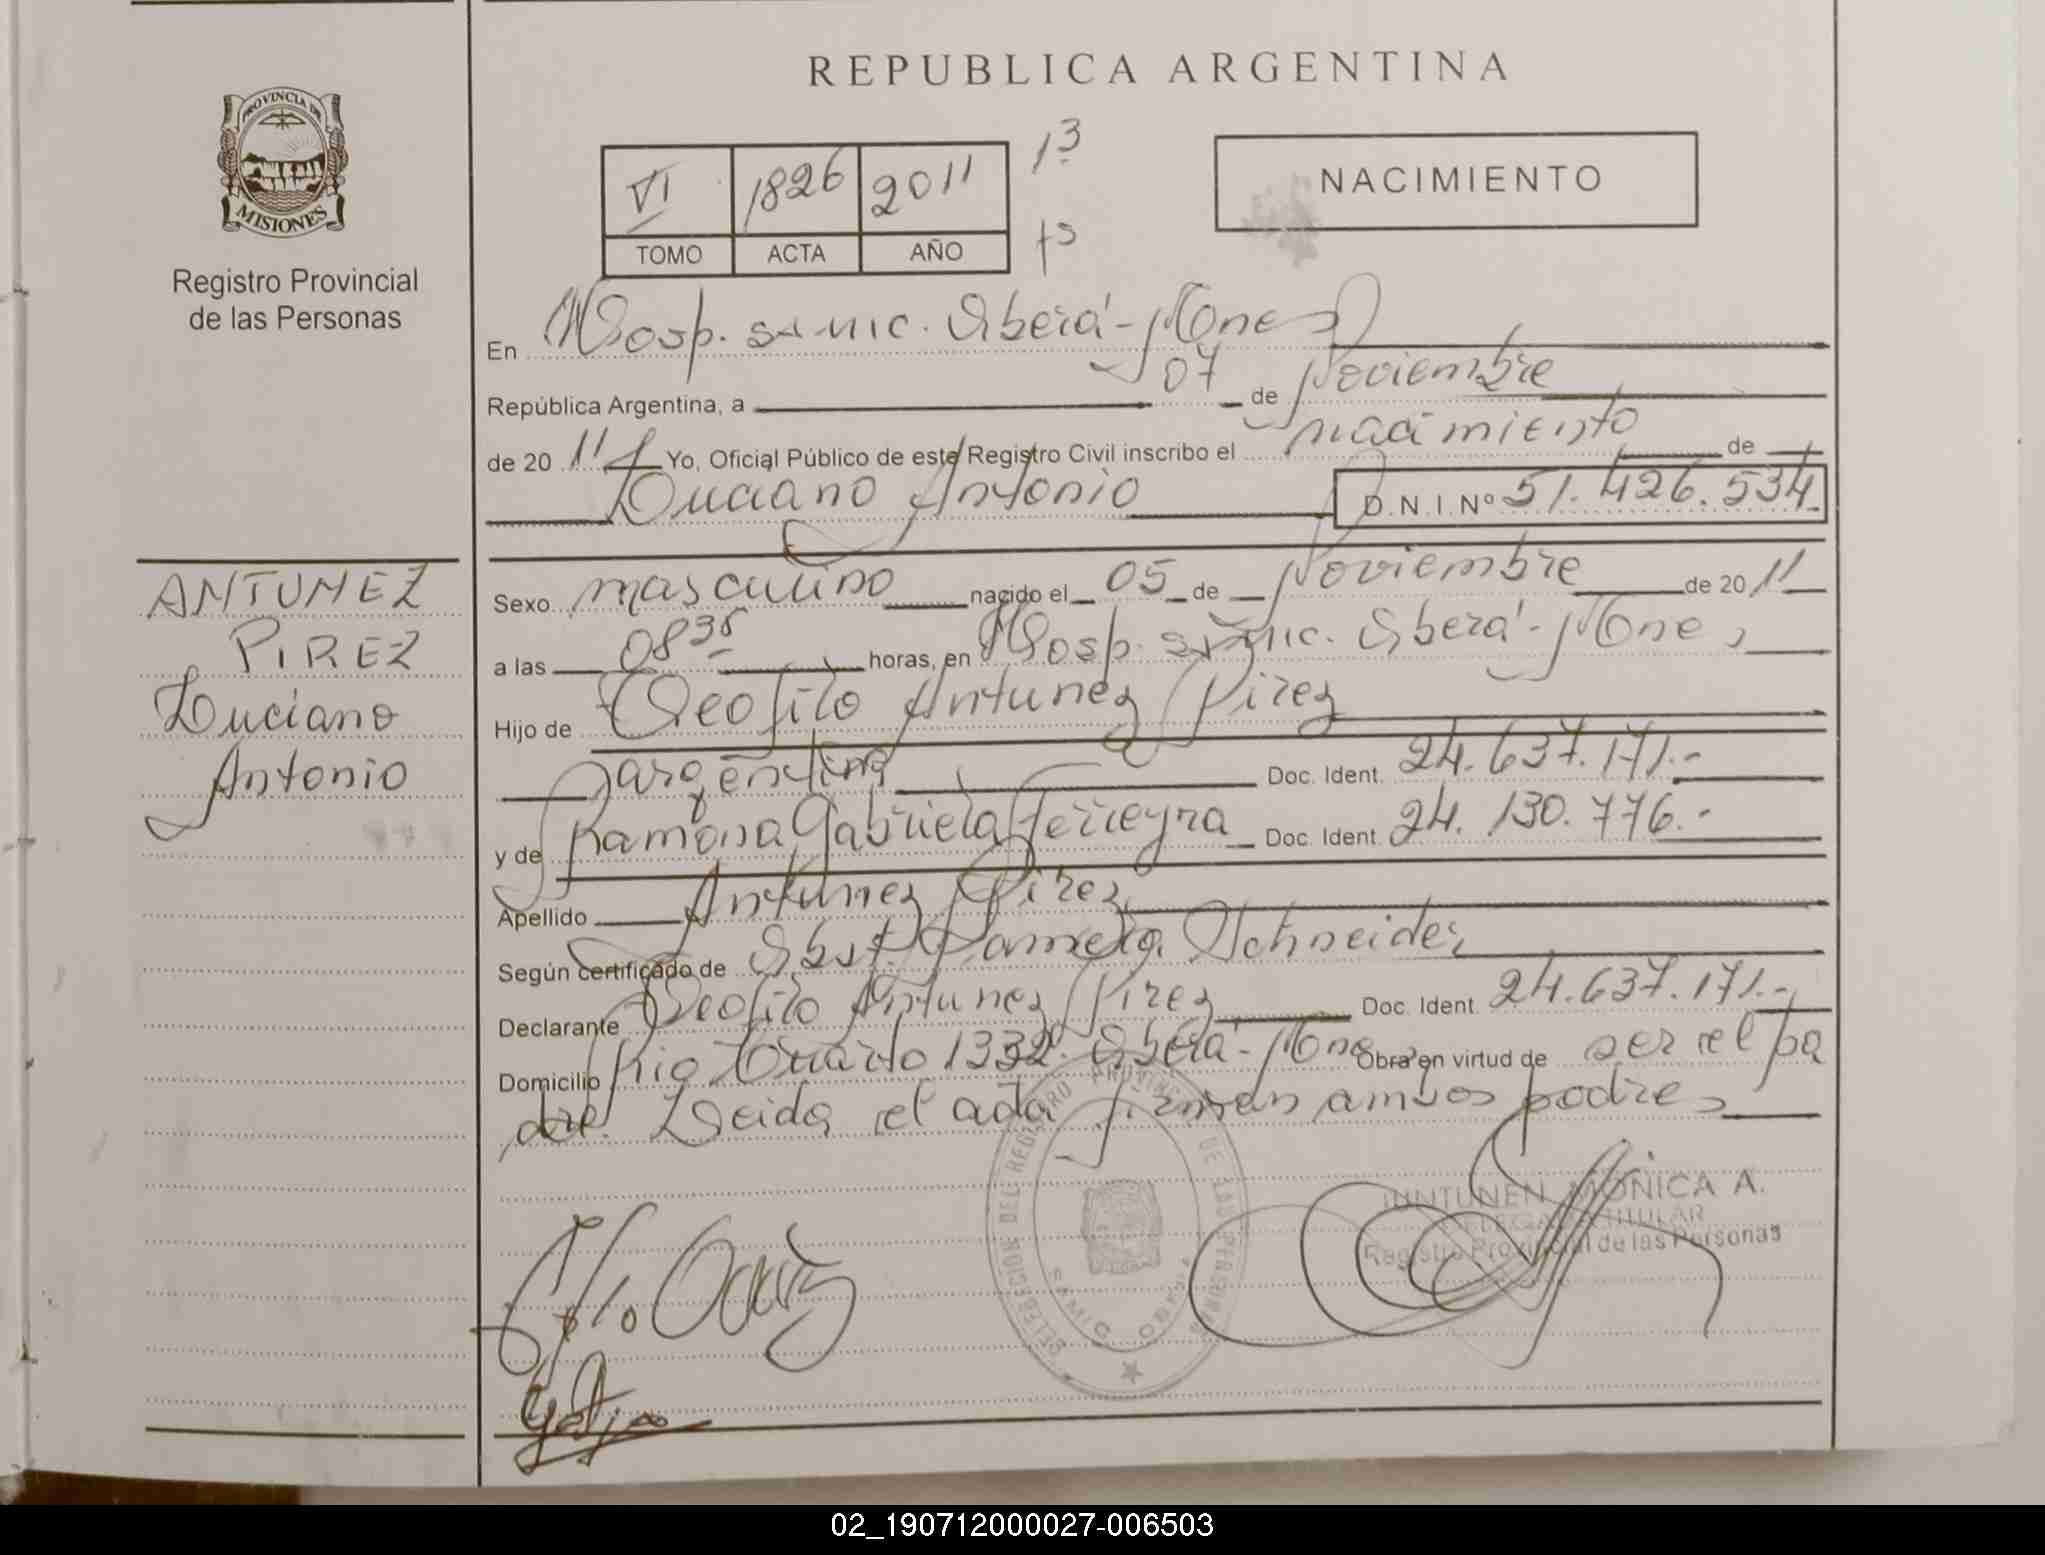 REPUBLICA ARGENTINA
PROVINCIA DE
MISIONES
Registro Provincial
de las Personas
VI 1826 2011
TOMO ACTA AÑO
NACIMIENTO
En Hosp. samic. Oberá-Mnes
República Argentina, a 07 de Noviembre
de 2011 Yo, Oficial Público de este Registro Civil inscribo el nacimiento de
Luciano Antonio D.N.I.Nº 51.426.534
ANTUNEZ
PIREZ
Luciano
Antonio
Sexo masculino nacido el 05 de Noviembre de 2011
a las 08 35 horas, en Hosp. samic. Oberá-Mnes
Hijo de Teofilo Antunez Pirez
argentina Doc. Ident. 24.637.171.-
y de Ramona Gabriela Ferreyra Doc. Ident. 24.130.776.-
Apellido Antunez Pirez
Según certificado de Obst. Pamela Schneider
Declarante Teofilo Antunez Pirez Doc. Ident. 24.637.171.-
Domicilio Rio Cuarto 1332. Oberá-Mnes Obra en virtud de ser el pa
dre. Leida el acta firman ambos padres
DELEGACION DEL REGISTRO PROVINCIAL DE LAS PERSONAS
SAMIC OBERA
MONICA A.
DELEGADA TITULAR
Registro Provincial de las Personas
02_190712000027-006503